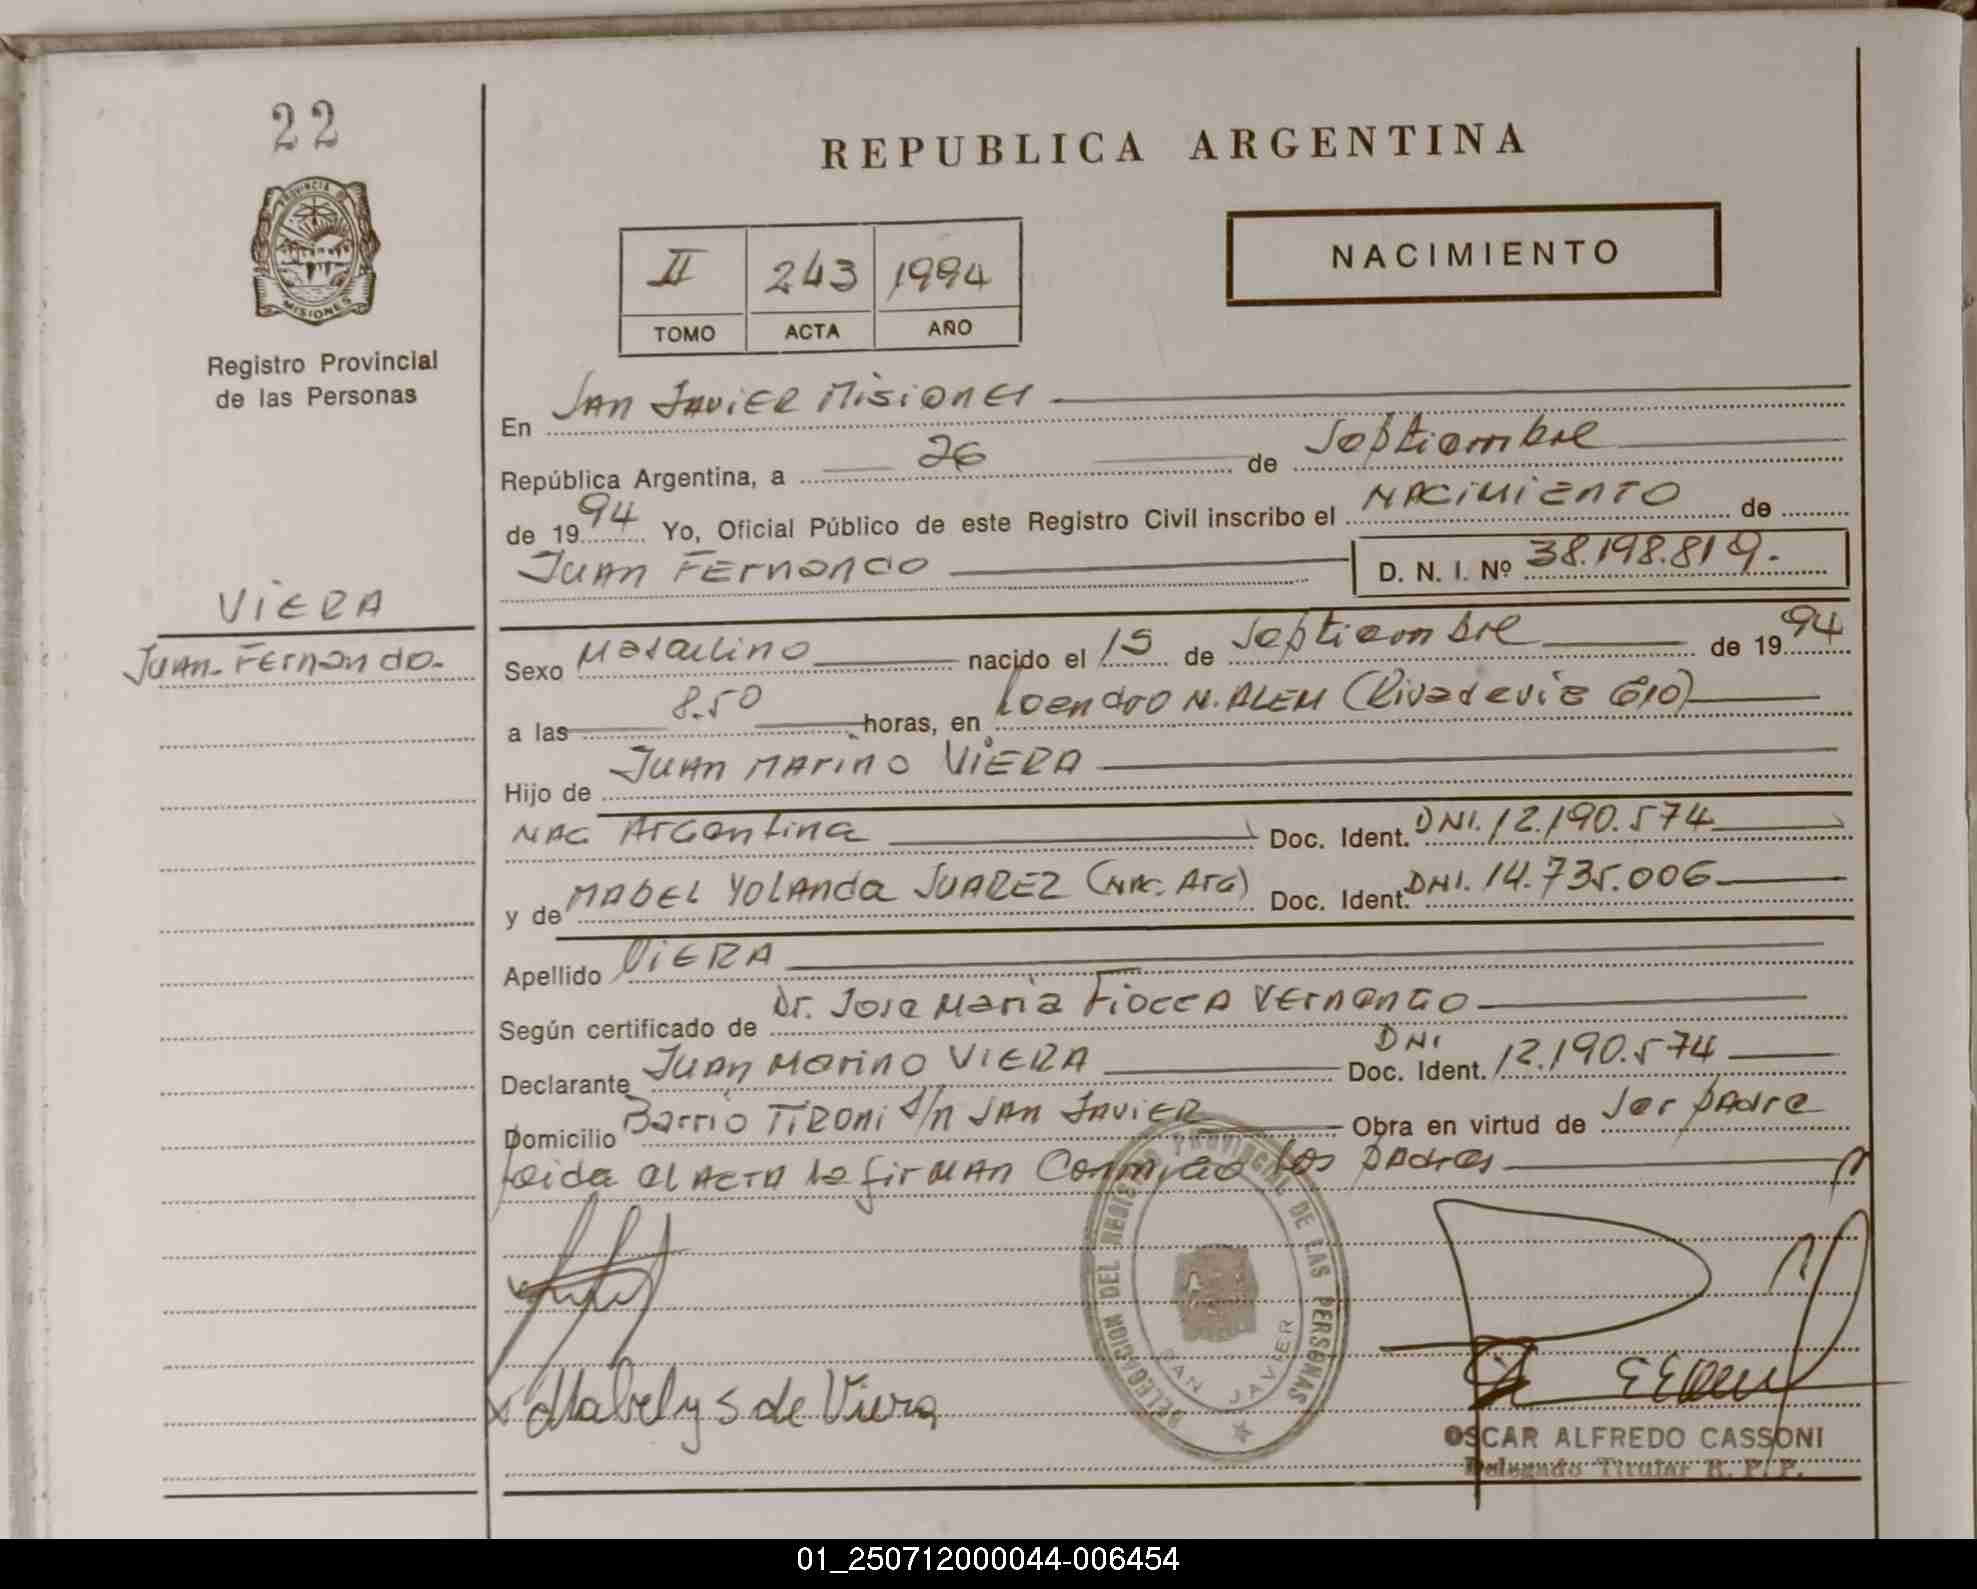 22
PROVINCIA DE
MISIONES
Registro Provincial
de las Personas
VIERA
Juan Fernando.
REPUBLICA ARGENTINA
II 243 1994
TOMO ACTA AÑO
NACIMIENTO
En San Javier Misiones
República Argentina, a 26 de Septiembre
de 1994 Yo, Oficial Público de este Registro Civil inscribo el NACIMIENTO de
Juan Fernando D. N. I. Nº 38.198.819.
Sexo Masculino nacido el 15 de Septiembre de 1994
a las 8.50 horas, en Leandro N. ALEM (Rivadavia 610)
Hijo de Juan Marino VIERA
NAC Argentina Doc. Ident. DNI. 12.190.574
y de MABEL YOLANDA JUAREZ (NAC. ARG) Doc. Ident. DNI. 14.735.006
Apellido VIERA
Según certificado de Dr. Jose Maria Fiocca Vernengo
Declarante Juan Marino VIERA DNI Doc. Ident. 12.190.574
Domicilio Barrio TIRONI S/n San Javier Obra en virtud de Ser padre
Leida el ACTA la firman Conmigo los padres
DELEGACION DEL REGISTRO PROVINCIAL DE LAS PERSONAS
SAN JAVIER
Mabel y S de Viera
OSCAR ALFREDO CASSONI
Delegado Titular R. P. P.
01_250712000044-006454